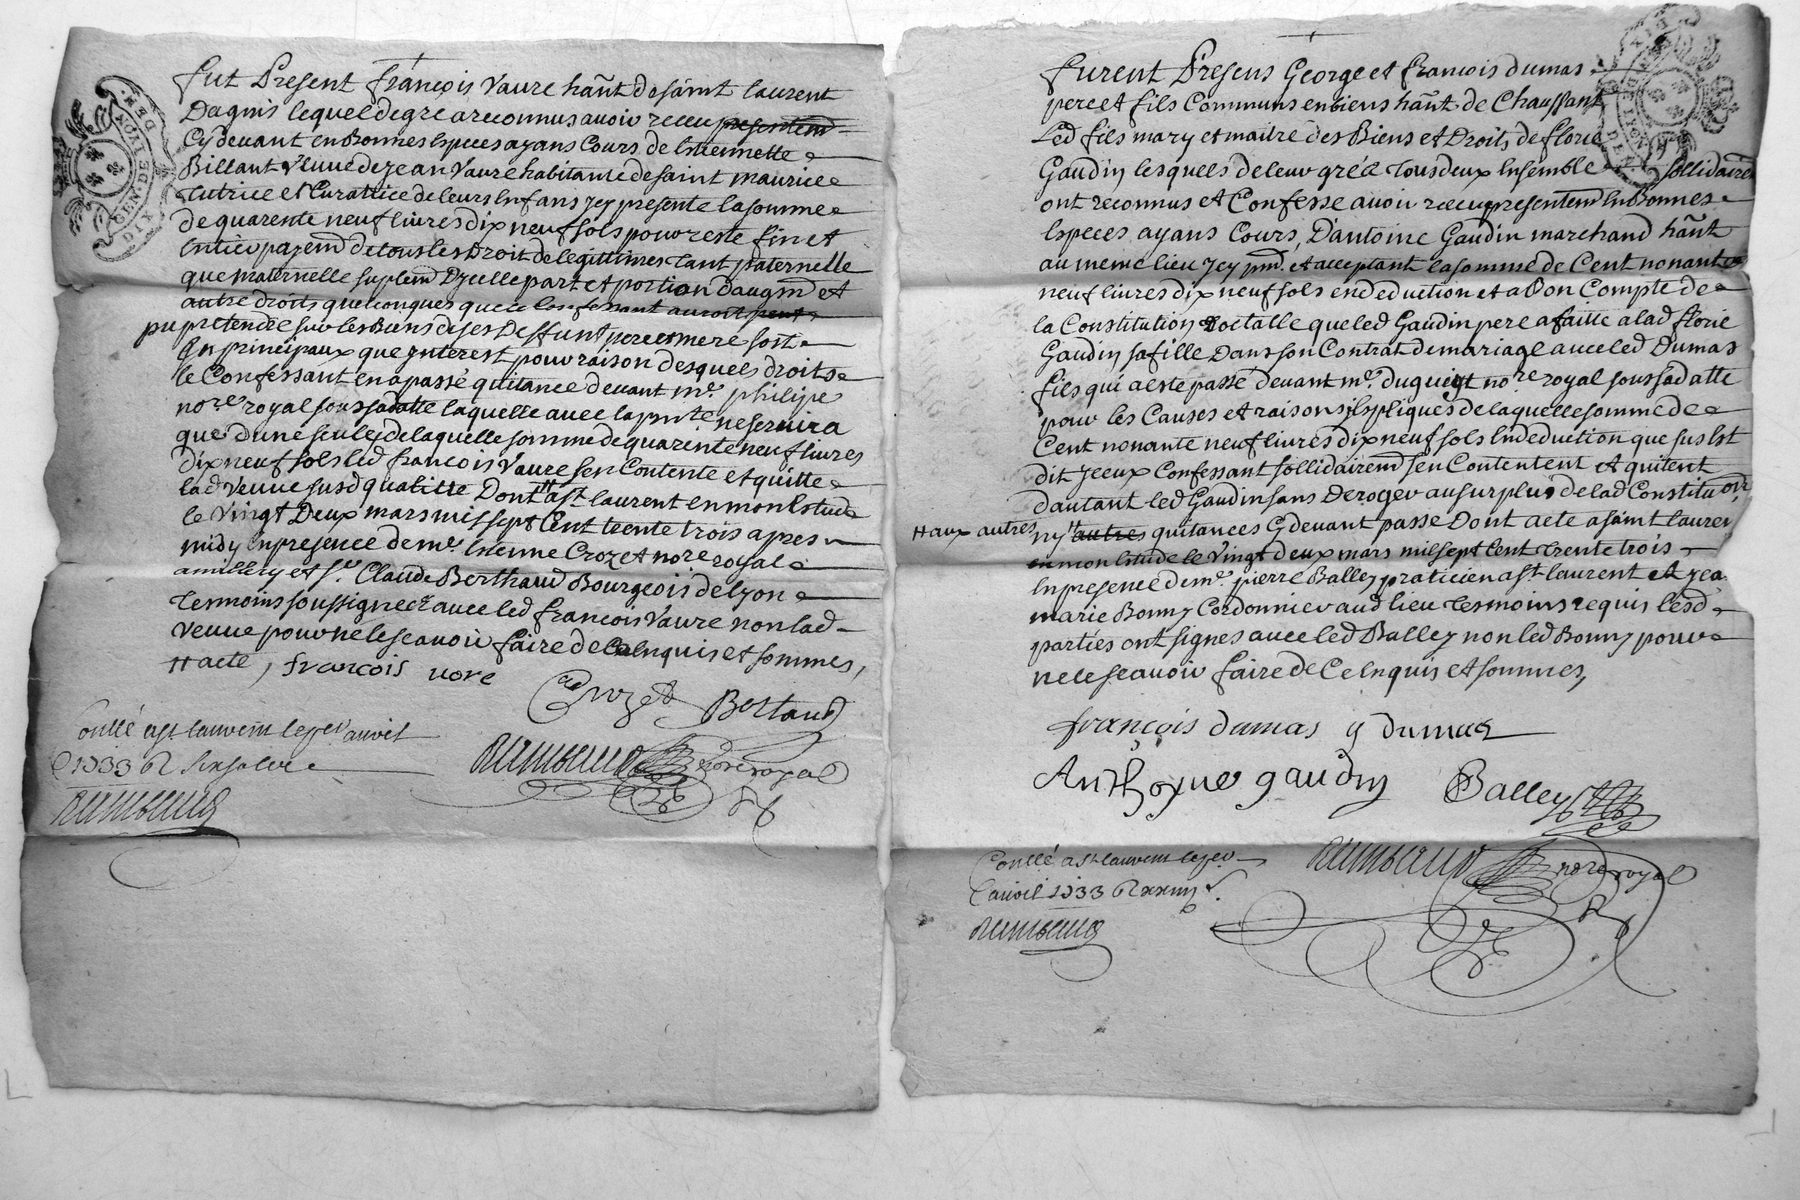 fut Present françois Vaure hãnt de saint laurent
Dagnis lequel de gre a reconnus avoir receu presentem
Cy devant en Bonnes Especes ayans Cours de Estiennette
Billant Veuve de jean Vaure habitante de saint maurice
tutrice et Curatrice de leurs Enfans jcy presente la somme
de quarente neuf livres dix neuf sols pour reste fin et
Entier payemd de tous les Droit de legittimes tant paternelle
que maternelle suplem Djcelle part et portion daugmd et
autre droits quelconques que le Confessant auroit peut
pu pretendre sur les Biens de ses Deffunt pere et mere soit
En principaux que jnterest pour raison desquels droits
le Confessant en a passé quitance devant me. philipe
nore royal soussadatte laquelle avec la pnte ne servira
que dune seule, de laquelle somme de quarente neuf livres
dix neuf sols led françois Vaure sen Contente et quitte
lad Veuve susd qualitte Dont ++ a st laurent en mon Estude
le Vingt Deux mars mil sept Cent trente trois apres
midy En presence de me. Estienne Crozet nore royal
amillery et sr. Claude Berthaud Bourgeois de lyon
temoins soussignee avec led françois Vaure non lad
Veuve pour ne le scavoir faire de Ce Enquis et sommes,
++ acte, françois vore
Crozet Bertaud
Conllé a st laurent le per avril
1733 R six solz
nore royal
DIX DEN. GEN. DE LYON
furent Presens George et françois dumas
pere et fils Communs en biens hãnt de Chaussant
Led fils mary et maitre des Biens et Droits de florie
Gaudin lesquels de leur gré et tous deux Ensemble sollidairem
ont reconnus et Confesse avoir receu presentem En Bonnes
Especes ayans Cours, D'antoine Gaudin marchand hãnt
au meme lieu jcy pnt. et acceptant la somme de Cent nonante
neuf livres dix neuf sols en deduction et a Bon Compte de
la Constitution Doctalle que led Gaudin pere a faitte a lad florie
Gaudin sa fille Dans son Contrat de mariage avec led Dumas
fils qui a este passé devant me. dugueyt nore royal soussadatte
pour les Causes et raisons y Expliqués de laquelle somme de
Cent nonante neuf livres dix neuf sols En deduction que sus Est
dit jceux Confessant sollidairem sen Contentent et quitent
dautant led Gaudin sans Deroger au surplus de lad Constitution
++ aux autres
ny ++ autres quitances Cy devant passe Dont acte a saint lauren
en mon Estude le Vingt deux mars mil sept Cent trente trois
En presence de me. pierre Balley praticien a st laurent et jean
marie Bonny Cordonnier aud lieu temoins requis lesd
parties ont signes avec led Balley non led Bonny pour
ne le scavoir faire de Ce Enquis et sommes,
françois dumas g dumas
Anthoyne gaudin Balley
Conllé a st laurent le per
avril 1733 R
nore royal